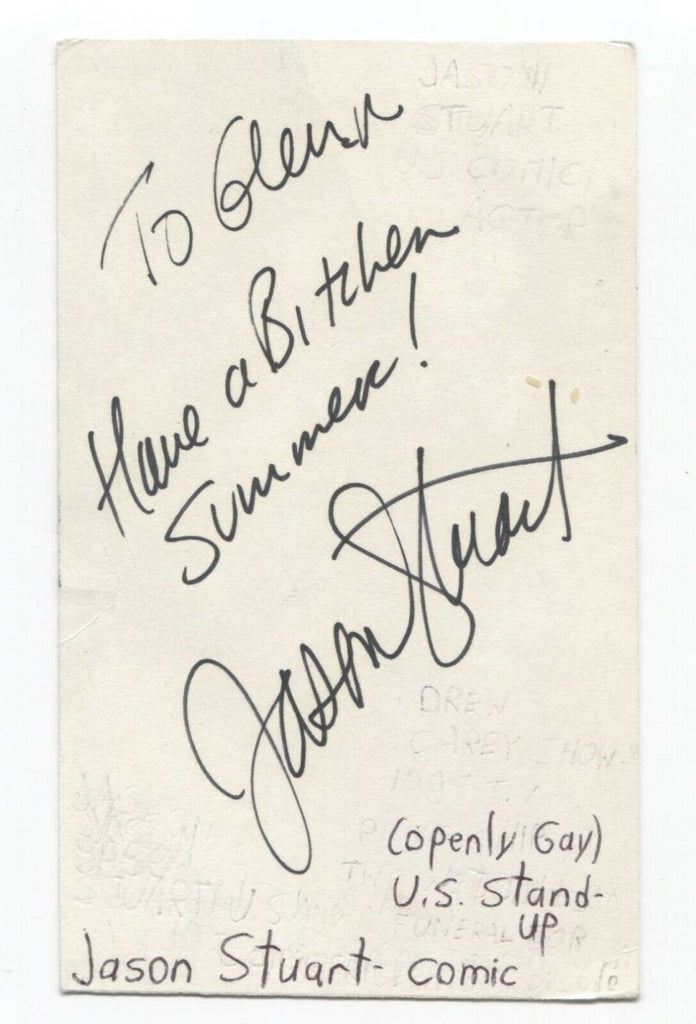 JASON
STUART
U.S. COMIC
ACTOR
To Glenn
Have a Bitchen
Summer!
Jason Stuart
DREW
CAREY SHOW
(openly Gay)
U.S. Stand-
up
FUNERAL
Jason Stuart- comic